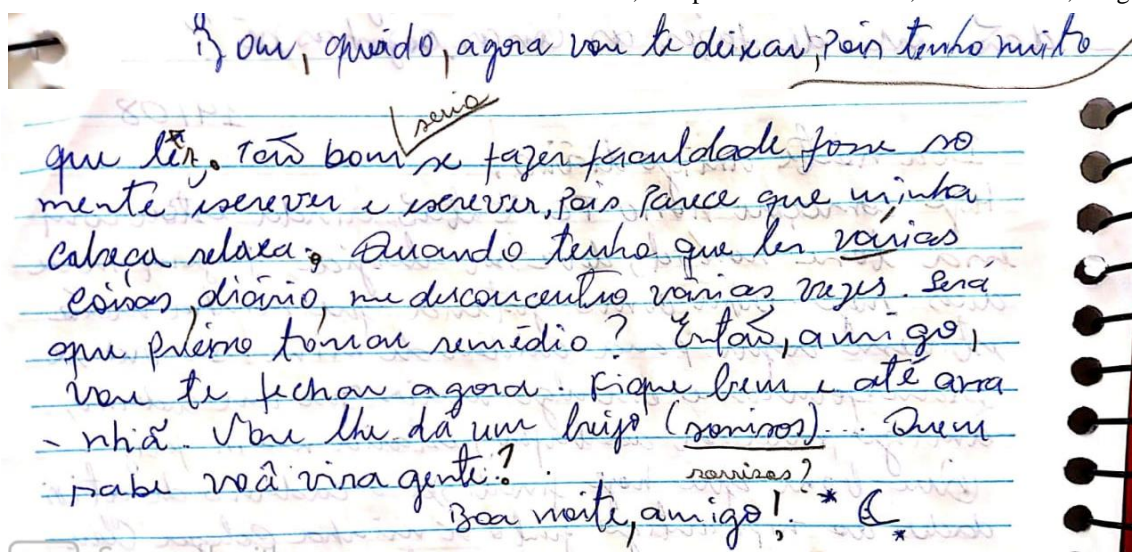 Bom, quêrido, agora vou te deixar, pois tenho muito
seria
que lêr. Tão bom se fazer faculdade fosse so
mente escrever e escrever, pois parece que minha
cabeça relaxa. Quando tenho que ler várias
coisas, diário, me desconcentro várias vezes. Será
que preciso tomar remédio? Então, amigo,
vou te fechar agora. Fique bem e até ama
- nhã. Vou lhe dá um beijo (sorrisos)... Quem
sabe você vira gente?!
sorrisos?
Boa noite, amigo!